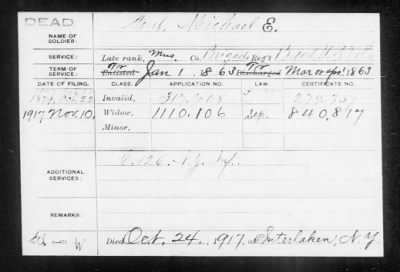 DEAD
Michael E.
NAME OF SOLDIER:
SERVICE:
Late rank, Mus. Co. Brigade Reg't Band
TERM OF SERVICE:
Enlisted Tr Jan 1, 1863 Discharged Tr Mar or Apr. 1863
DATE OF FILING. CLASS. APPLICATION NO. LAW. CERTIFICATE NO.
Invalid.
1917 Nov. 10. Widow. 1110.106 840.817
Minor.
C. 126 N.Y. Inf.
ADDITIONAL SERVICES:
REMARKS:
W Died Oct. 24, 1917, at Interlaken, N.Y.